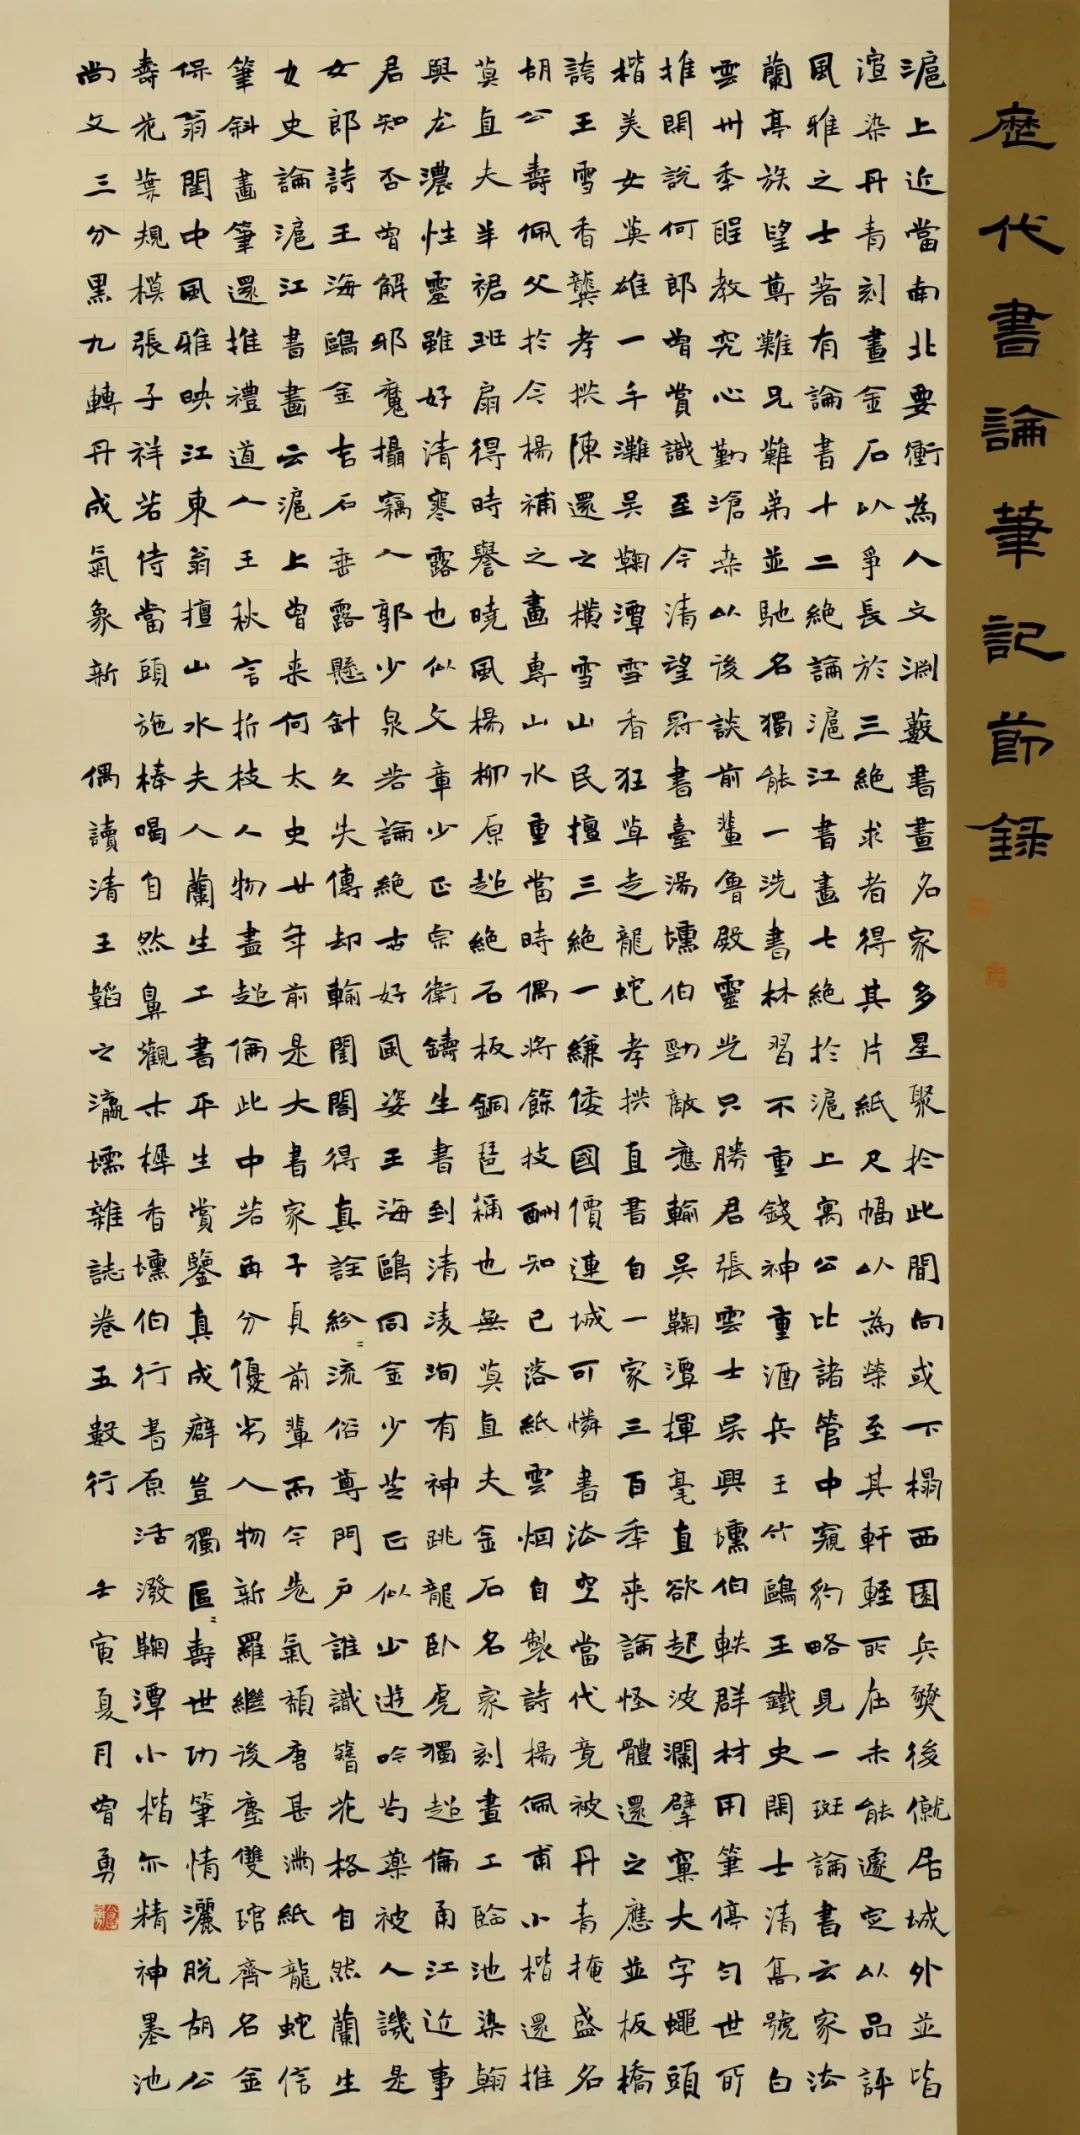 歷代書論筆記節錄
滬上近當南北要衝為人文淵藪書畫名家多星聚於此間向或下榻西園兵燹後僦居城外並皆
渲染丹青刻畫金石以爭長於三絕求者得其片紙尺幅以為榮至其軒輊所在未能遽定以品評
風雅之士著有論書十二絕論滬江書畫七絕於滬上寓公比諸管中窺豹略見一斑論書云家法
蘭亭族望尊難兄難弟並馳名獨能一洗書林習不重錢神重酒兵王竹鷗王鐵史閑士清寯號白
雲卅季教究心勤滄桑以後談前輩魯殿靈光只勝君張雲士吳興壎伯軼群材用筆停勻世所
推閑說何郎曾賞識至今清望冠書臺湯壎伯勁敵應輸吳鞠潭揮毫直欲起波瀾擘窠大字蠅頭
楷美女英雄一手灘吳鞠潭雪香狂草走龍蛇孝拱直書自一家三百季來論怪體還之應並板橋
誇王雪香龔孝拱陳還之橫雪山民擅三絕一縑倭國價連城可憐書法空當代竟被丹青掩盛名
胡公壽佩父於今楊補之畫專山水重當時偶將餘技酬知已落紙雲烟自製詩楊佩甫小楷還推
莫直夫羊裙班扇得時譽曉風楊柳原超絕石板銅琶稱也無莫直夫金石名家刻畫工臨池染翰
與尤濃性靈雖好清寒露也似文章少正宗衛鑄生書到清淩洵有神跳龍臥虎獨超倫甬江近事
君知否曾解邪魔攝竊人郭少泉若論絕古好風姿王海鷗同金少芝已似山遊吟芍藥被人譏是
女郎詩王海鷗金吉石垂露懸針久失傳却輸閨閣得真詮紛〻流俗尊門戶誰識簪花格自然蘭生
女史論滬江書畫云滬上曾來何太史廿年前是大書家子貞前輩而今老氣頹唐甚滿紙龍蛇信
筆斜畫筆還推禮道人王秋言折枝人物盡超倫此中若再分優劣人物新羅繼後塵雙琯齊名金
保翁閨中風雅映江東翁擅山水夫人蘭生工書平生賞鑒真成癖豈獨區〻壽世功筆情灑脫胡公
壽花葉規模張子祥若待當頭施棒喝自然鼻觀十樨香壎伯行書原活潑鞠潭小楷亦精神墨池
尚欠三分黑九轉丹成氣象新 偶讀清王韜之瀛壖雜誌卷五數行 壬寅夏月曾勇